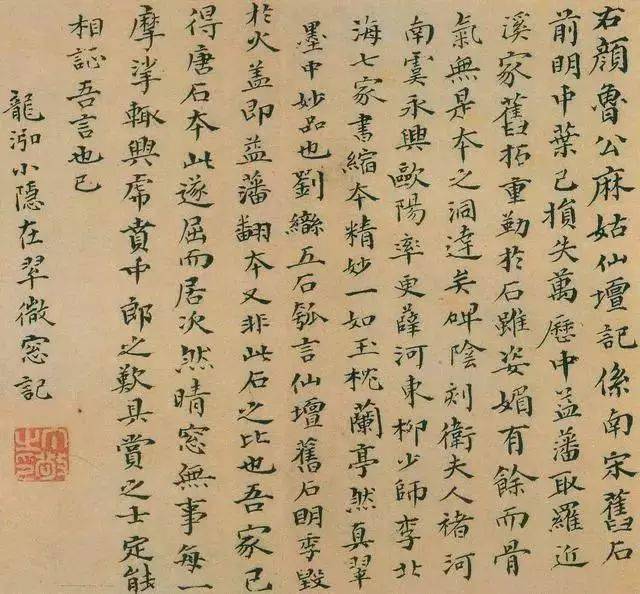 右顏魯公麻姑仙壇記係南宋舊石
前明中葉已損失萬歷中益藩取羅近
溪家舊拓重勒於石雖姿媚有餘而骨
氣無是本之洞達矣碑陰刻衛夫人褚河
南虞永興歐陽率更薛河東柳少師李北
海七家書縮本精妙一如玉枕蘭亭然真翠
墨中妙品也劉繼五石瓠言仙壇舊石明季毀
於火蓋即益藩翻本又非此石之比也吾家已
得唐石本此遂屈而居次然晴窓無事每一
摩挲輒興虎賁中郎之歎具賞之士定能
相証吾言也已
龍泓小隱在翠微窓記